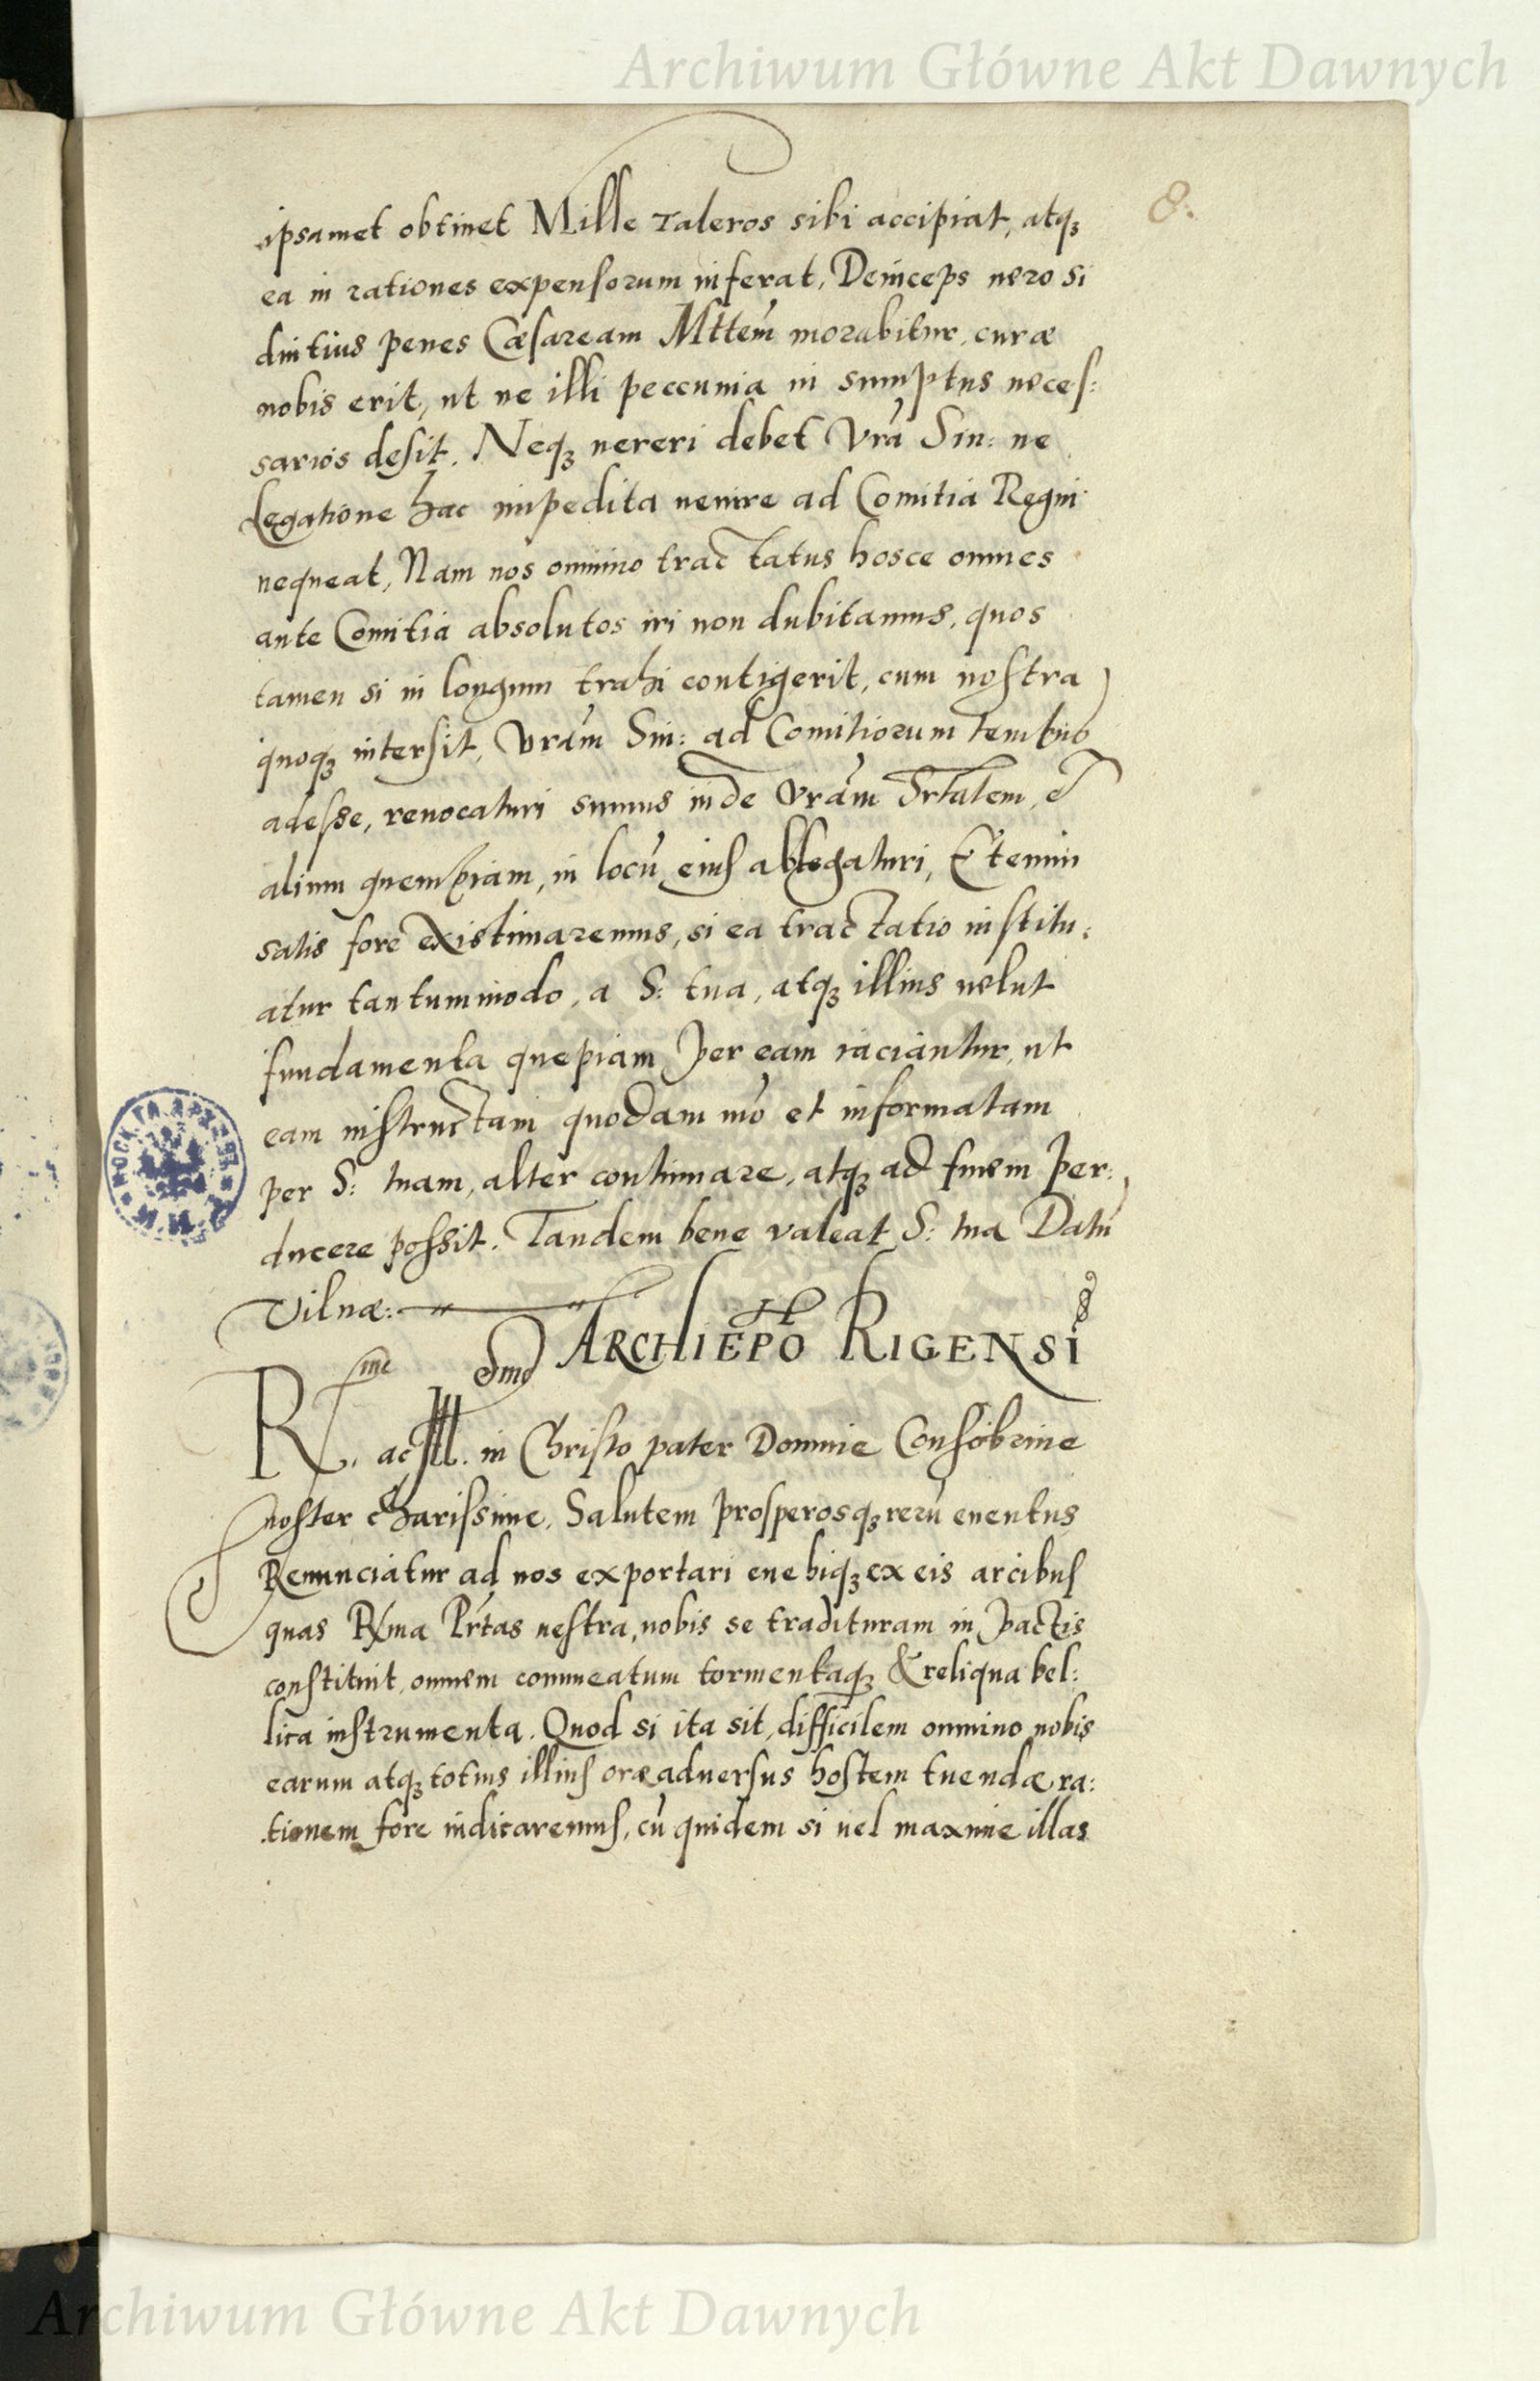 Archiwum Główne Akt Dawnych
8.
ipsamet obtinet Mille Taleros sibi accipiat, atq3
ea in rationes expensorum inferat, Deinceps vero si
diutius penes Cæsaream Mttem̃ morabitur, curæ
nobis erit, ut ne illi peccunia in sumptus neces:
sarios desit. Neq3 vereri debet Vrã Sin: ne
Legatione hac impedita venire ad Comitia Regni
nequeat, Nam nos omnino tractatus hosce omnes
ante Comitia absolutos iri non dubitamus, quos
tamen si in longum trahi contigerit, cum nostra
quoq3 intersit, Vrãm Sin: ad Comitiorum tempus
adesse, revocaturi sumus inde Vrãm Srtatem, et
alium quempiam, in locũ eius ablegaturi, Etenim
satis fore existimaremus, si ea tractatio institu:
atur tantummodo, a S: tua, atq3 illius velut
fundamenta quepiam per eam iaciantur, ut
eam instructam quodam mõ et informatam
per S: tuam, alter continuare, atq3 ad finem per:
ducere possit. Tandem bene valeat S: tua Datũ
Vilnæ:
ARCHIEPO RIGENSI
Rme ac Ill. in Christo pater Domine Consobrine
noster charissime, Salutem prosperosq3 rerũ eventus
Renunciatur ad nos exportari evehiq3 ex eis arcibus
quas Rma Prtas vestra, nobis se tradituram in pactis
constituit, omnem commeatum tormentaq3 & reliqua bel:
lica instrumenta. Quod si ita sit, difficilem omnino nobis
earum atq3 totius illius oræ adversus hostem tuendæ ra:
tionem fore iudicaremus, cũ quidem si vel maxime illas
Archiwum Główne Akt Dawnych